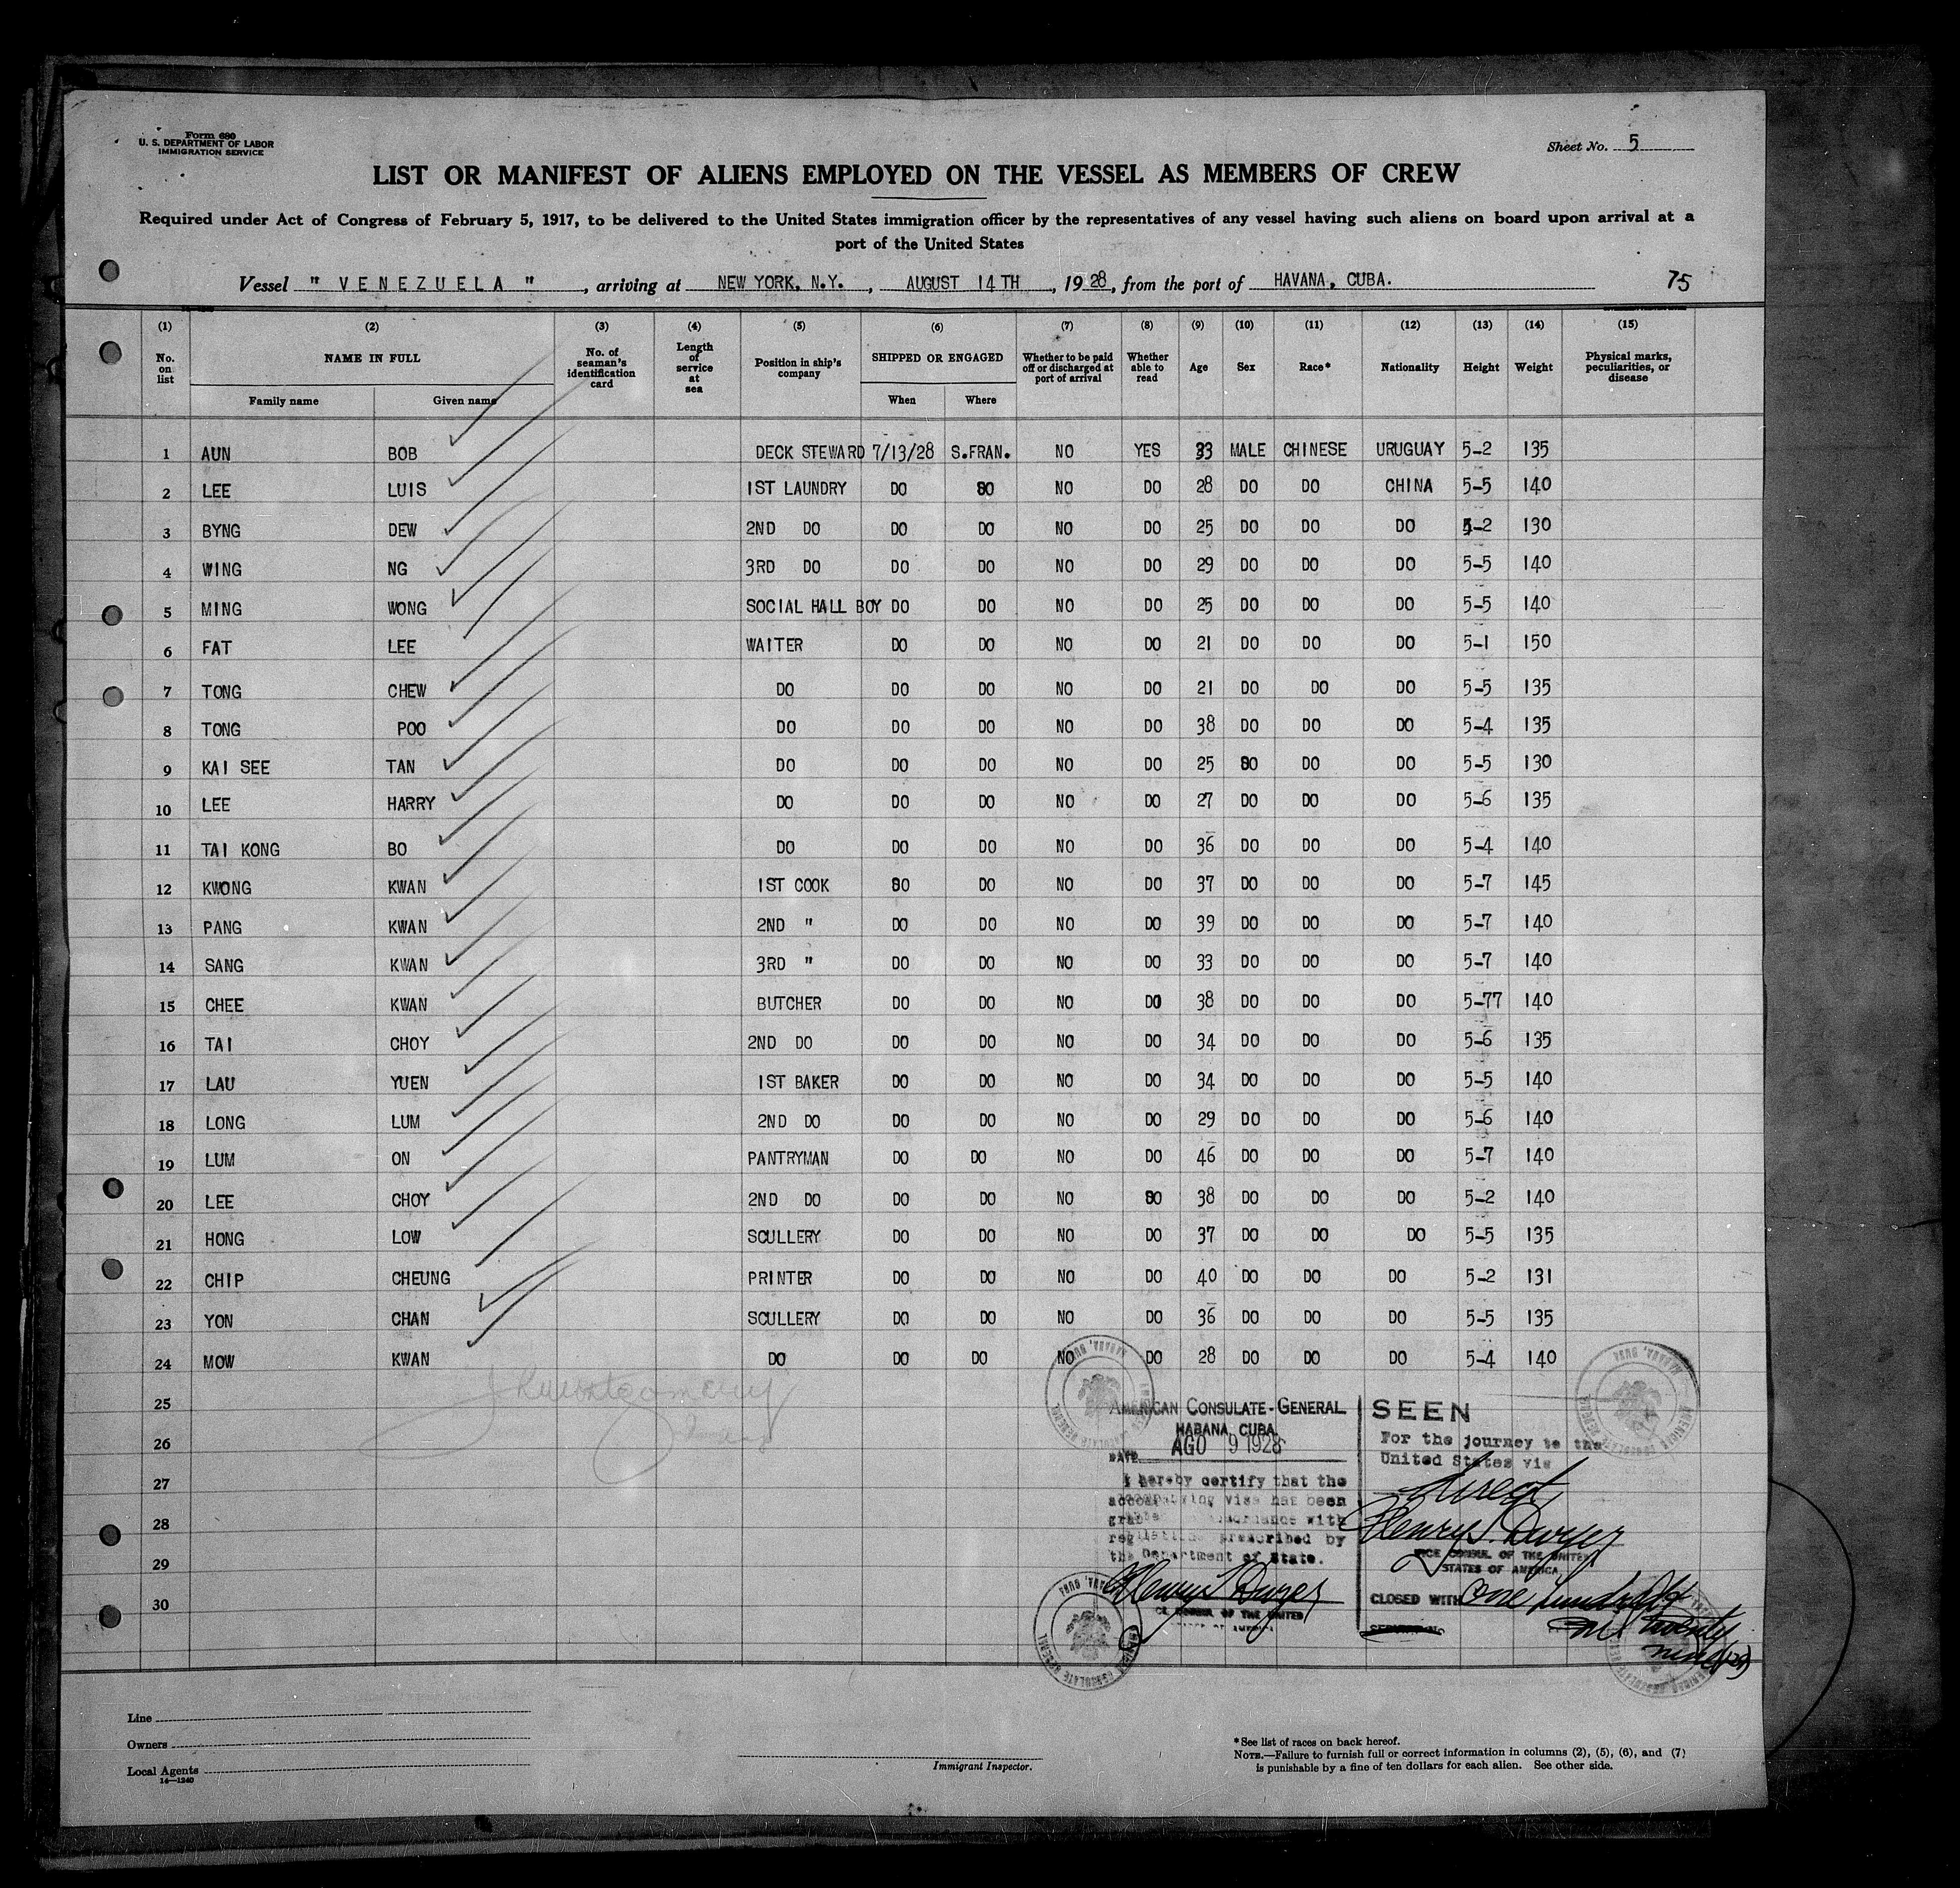 Form 680
U. S. DEPARTMENT OF LABOR
IMMIGRATION SERVICE
Sheet No. 5
LIST OR MANIFEST OF ALIENS EMPLOYED ON THE VESSEL AS MEMBERS OF CREW
Required under Act of Congress of February 5, 1917, to be delivered to the United States immigration officer by the representatives of any vessel having such aliens on board upon arrival at a
port of the United States
Vessel " VENEZUELA ", arriving at NEW YORK, N.Y., AUGUST 14TH, 1928, from the port of HAVANA, CUBA. 75
(1) (2) (3) (4) (5) (6) (7) (8) (9) (10) (11) (12) (13) (14) (15)
No. on list NAME IN FULL Family name Given name No. of seaman's identification card Length of service at sea Position in ship's company SHIPPED OR ENGAGED When Where Whether to be paid off or discharged at port of arrival Whether able to read Age Sex Race* Nationality Height Weight Physical marks, peculiarities, or disease
1 AUN BOB DECK STEWARD 7/13/28 S.FRAN. NO YES 33 MALE CHINESE URUGUAY 5-2 135
2 LEE LUIS 1ST LAUNDRY DO DO NO DO 28 DO DO CHINA 5-5 140
3 BYNG DEW 2ND DO DO DO NO DO 25 DO DO DO 5-2 130
4 WING NG 3RD DO DO DO NO DO 29 DO DO DO 5-5 140
5 MING WONG SOCIAL HALL BOY DO DO NO DO 25 DO DO DO 5-5 140
6 FAT LEE WAITER DO DO NO DO 21 DO DO DO 5-1 150
7 TONG CHEW DO DO DO NO DO 21 DO DO DO 5-5 135
8 TONG POO DO DO DO NO DO 38 DO DO DO 5-4 135
9 KAI SEE TAN DO DO DO NO DO 25 DO DO DO 5-5 130
10 LEE HARRY DO DO DO NO DO 27 DO DO DO 5-6 135
11 TAI KONG BO DO DO DO NO DO 36 DO DO DO 5-4 140
12 KWONG KWAN 1ST COOK DO DO NO DO 37 DO DO DO 5-7 145
13 PANG KWAN 2ND " DO DO NO DO 39 DO DO DO 5-7 140
14 SANG KWAN 3RD " DO DO NO DO 33 DO DO DO 5-7 140
15 CHEE KWAN BUTCHER DO DO NO DO 38 DO DO DO 5-77 140
16 TAI CHOY 2ND DO DO DO NO DO 34 DO DO DO 5-6 135
17 LAU YUEN 1ST BAKER DO DO NO DO 34 DO DO DO 5-5 140
18 LONG LUM 2ND DO DO DO NO DO 29 DO DO DO 5-6 140
19 LUM ON PANTRYMAN DO DO NO DO 46 DO DO DO 5-7 140
20 LEE CHOY 2ND DO DO DO NO DO 38 DO DO DO 5-2 140
21 HONG LOW SCULLERY DO DO NO DO 37 DO DO DO 5-5 135
22 CHIP CHEUNG PRINTER DO DO NO DO 40 DO DO DO 5-2 131
23 YON CHAN SCULLERY DO DO NO DO 36 DO DO DO 5-5 135
24 MOW KWAN DO DO DO NO DO 28 DO DO DO 5-4 140
25
26
27
28
29
30
AMERICAN CONSULATE-GENERAL
HABANA, CUBA
DATE AGO 9 1928
I hereby certify that the
accompanying visa has been
granted accordance with
regulations prescribed by
the Department of State.
Henry T Dwyer
CONSUL OF THE UNITED
OF AMERICA
SEEN
For the journey to the
United States via
direct
Henry T. Dwyer
VICE CONSUL OF THE UNITED
STATES OF AMERICA
CLOSED WITH One hundred
and twenty
nine (129)
Line
Owners
Local Agents
14—1240
Immigrant Inspector.
*See list of races on back hereof.
NOTE.—Failure to furnish full or correct information in columns (2), (5), (6), and (7)
is punishable by a fine of ten dollars for each alien. See other side.